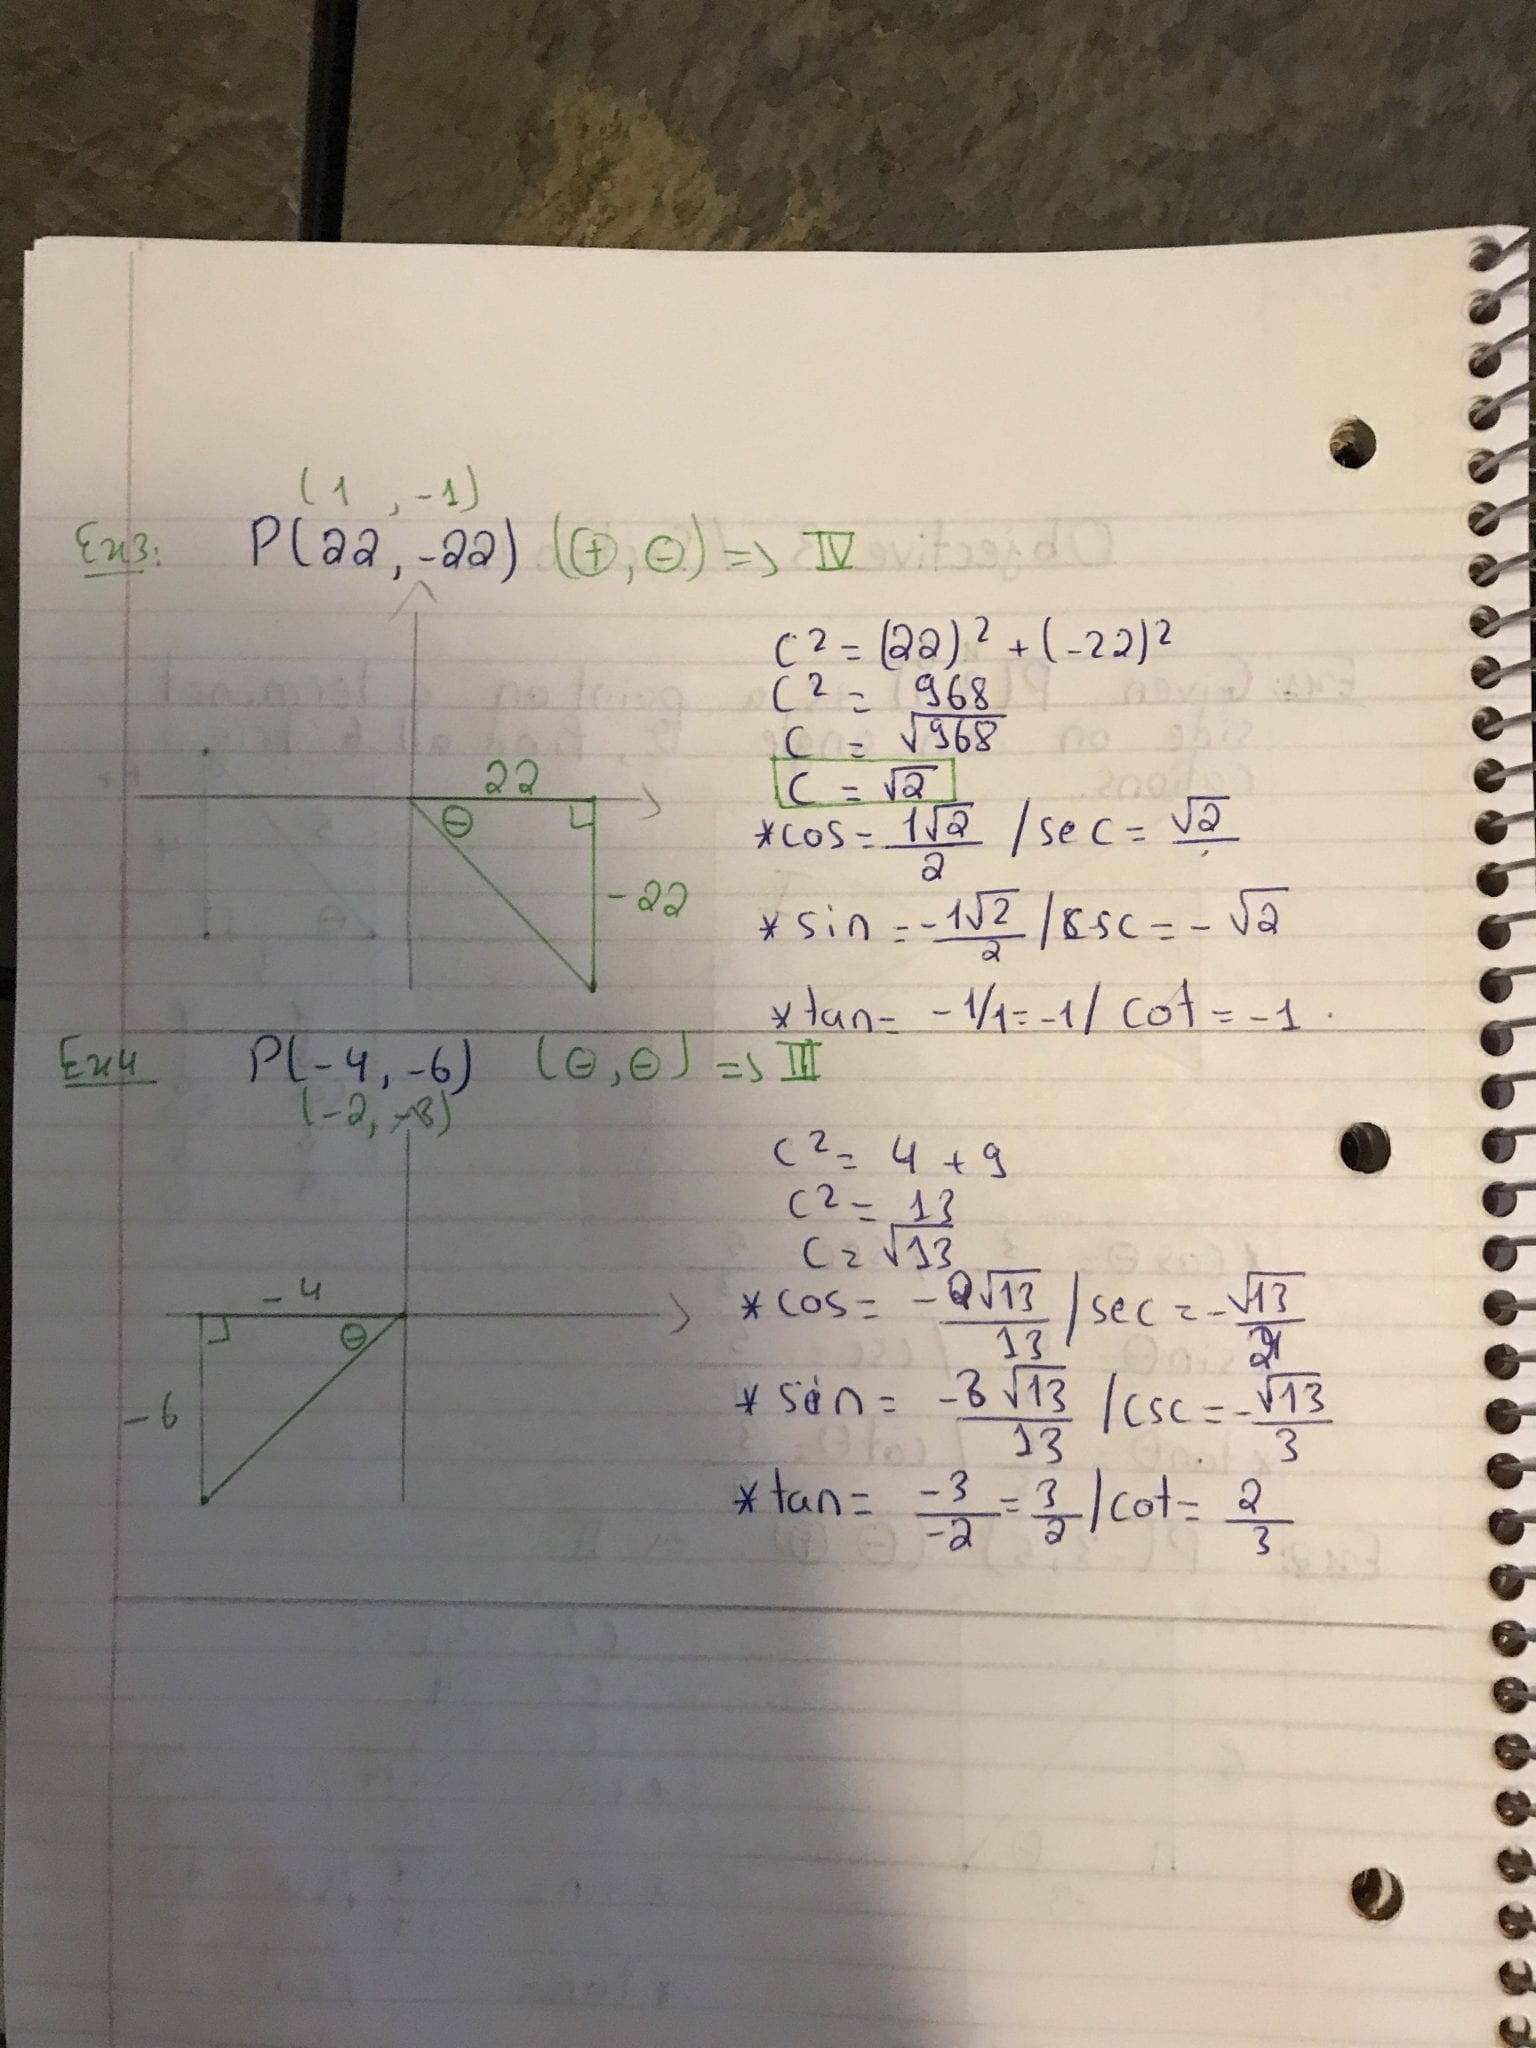 (1 , -1)
Ex3: P(22, -22) (⊕, ⊖) => IV
C² = (22)² + (-22)²
C² = 968
C = √968
C = √2
22
θ
-22
*cos = 1√2/2 / sec = √2
*sin = -1√2/2 / csc = -√2
*tan = -1/1 = -1 / cot = -1
Ex4 P(-4, -6) (⊖, ⊖) => III
(-2, -3)
C² = 4 + 9
C² = 13
C = √13
-4
θ
-6
*cos = -2√13/13 / sec = -√13/2
*sin = -3√13/13 / csc = -√13/3
*tan = -3/-2 = 3/2 / cot = 2/3